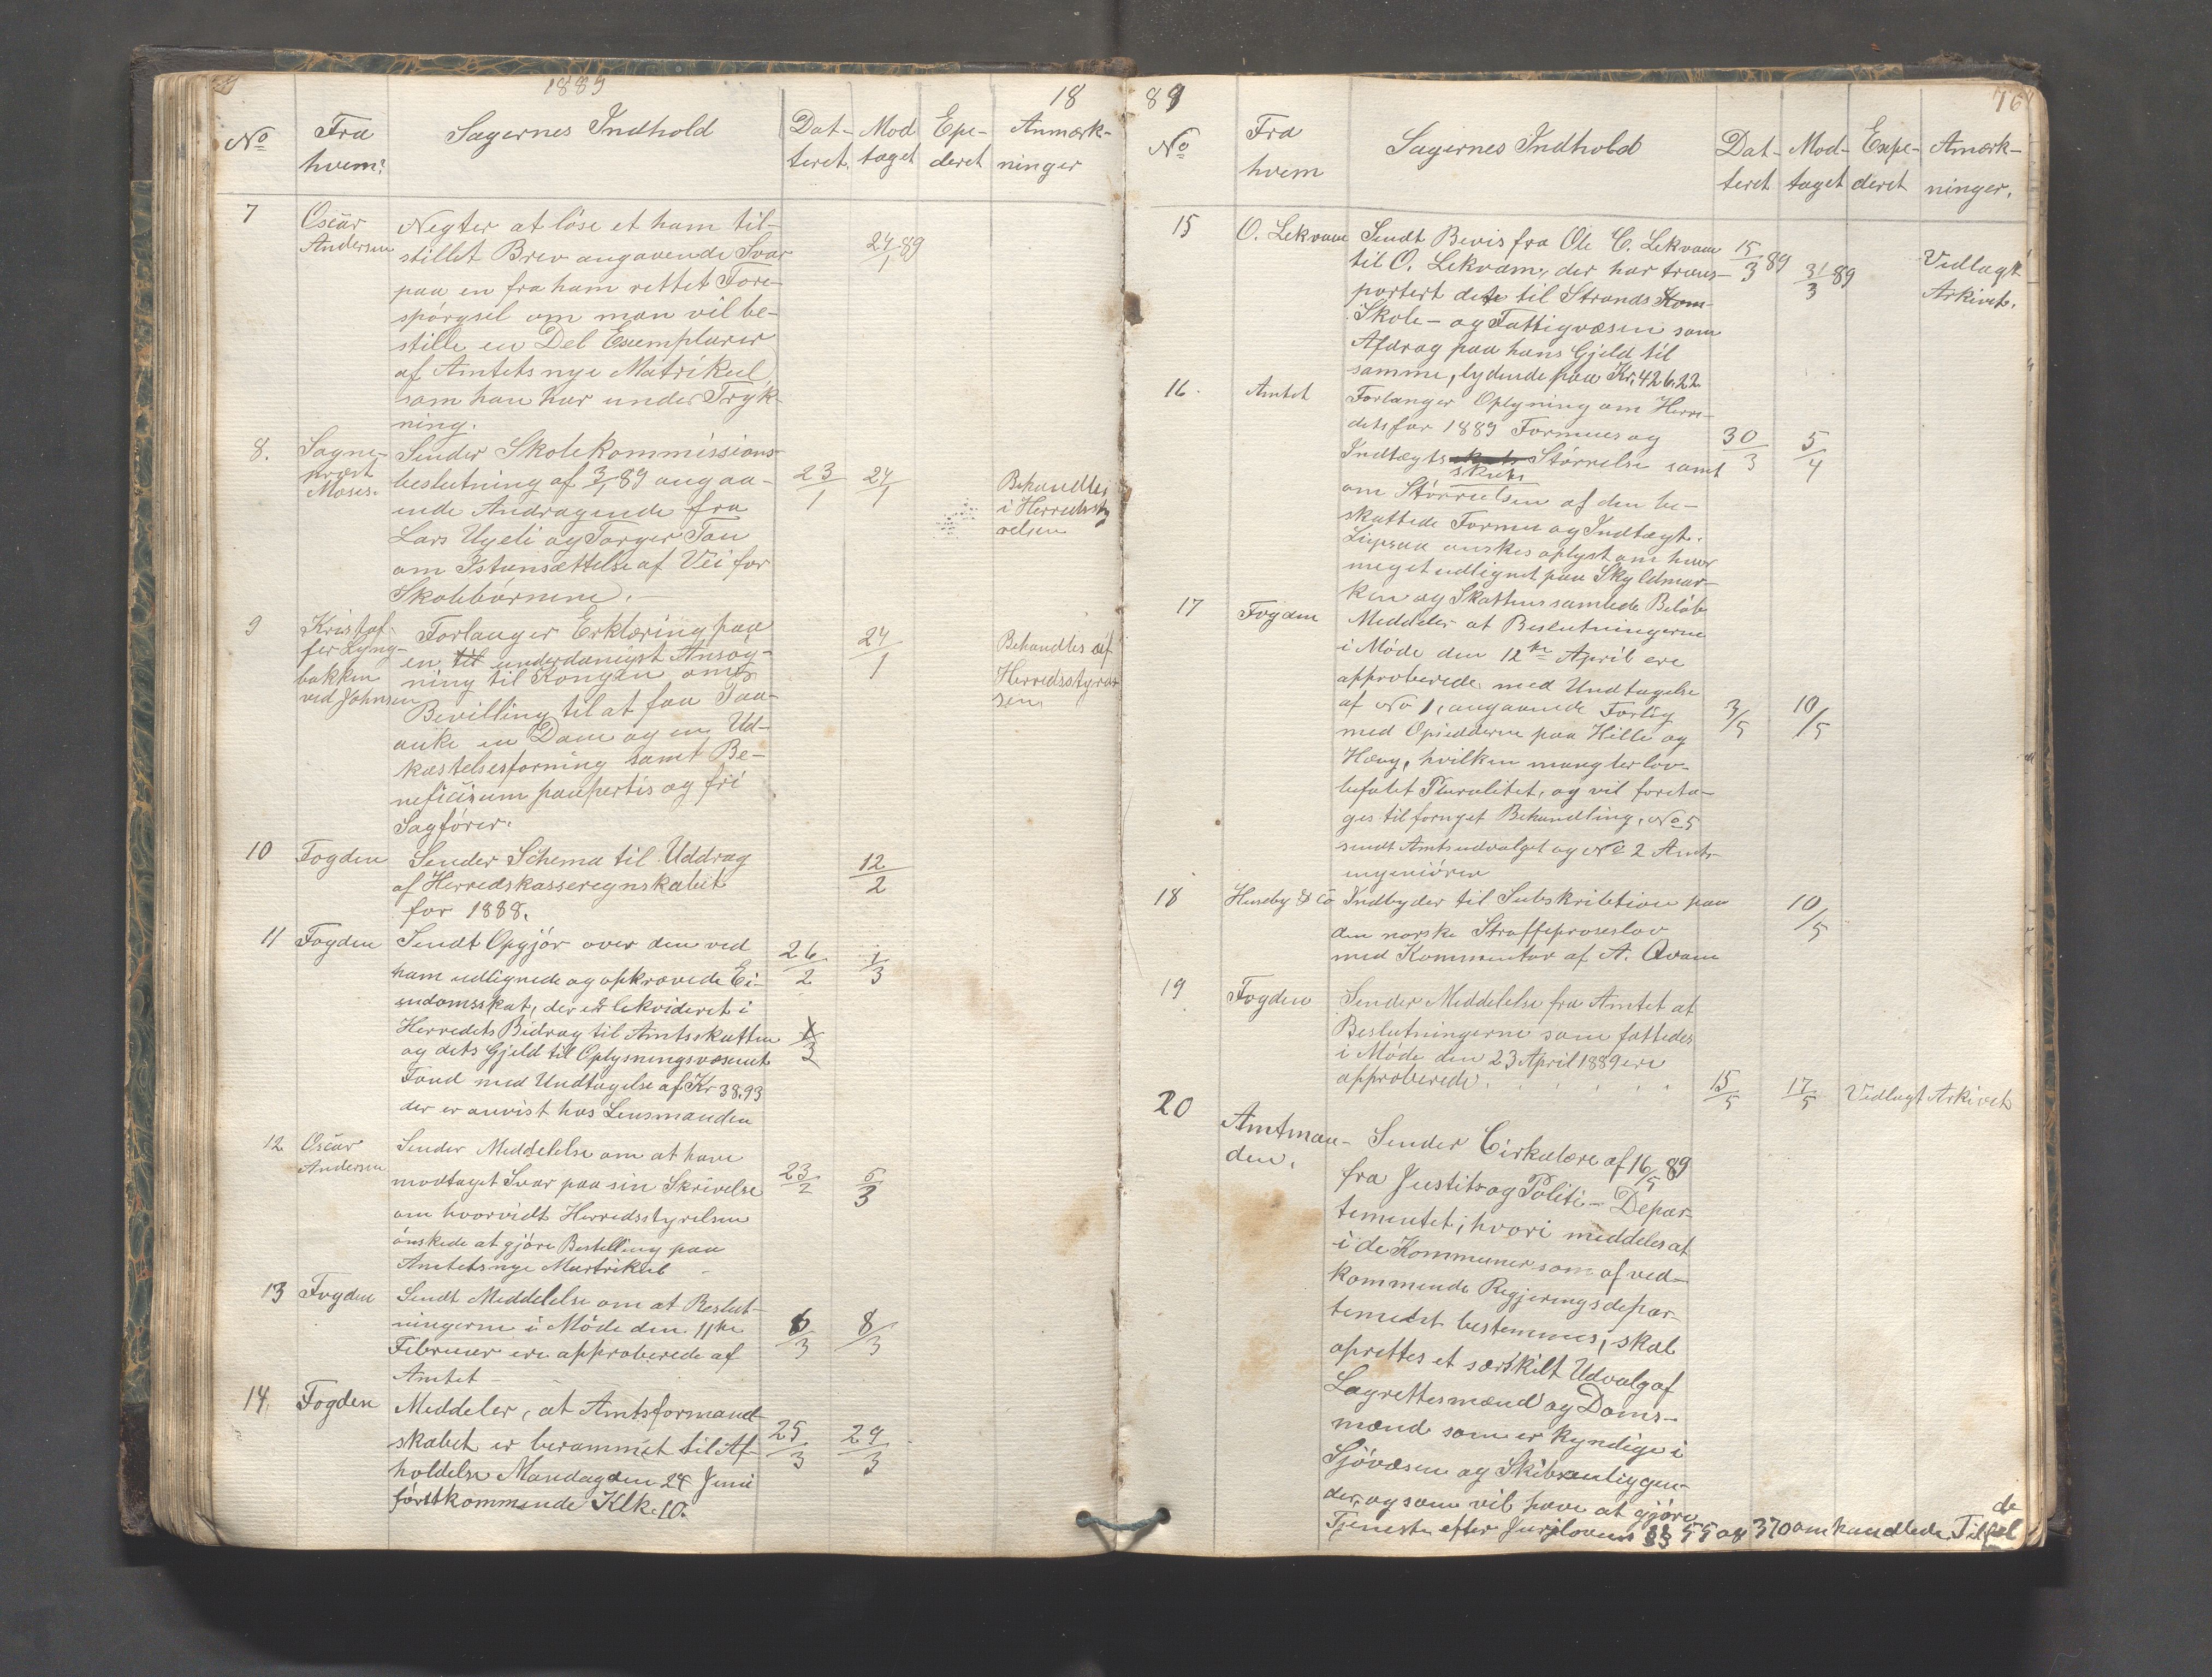 1889
18
No
Fra
hvem?
Sagernes Indhold
Dat-
teret.
Mod
taget
Expe-
deret
Anmærk-
ninger
7
Oscar
Andersen
Negter at löse et ham til-
stillet Brev angaaende Svar
paa en fra ham rettet Fore-
spörgsel om man vil be-
stille en Del Exemplarer
af Amtets nye Matrikul,
som han har under Tryk-
ning.
24/1 89
8.
Sogne-
præst
Moses.
Sender Skolekommissions-
beslutning af 3/1 89 angaa-
ende Andragende fra
Lars Ugeli og Torger Tou
om Istansættelse af Vei for
Skolebörnene.
23/1
24/1
Behandles
i Herredssty
relsen
9
Kristof-
fer Lyng-
bakken
ved Johnsen
Forlanger Erklæring paa
en til underdanigst Ansög-
ning til Kongen om
Bevilling til at faa Paa-
anke en Dom og en Ud-
kastelsesforning samt Be-
neficium paupertis og fri
Sagförer.
24/1
Behandles af
Herredsstyrel
sen
10
Fogden
Sender Schema til Uddrag
af Herredskasseregnskabet
for 1888.
12/2
11
Fogden
Sendt Opgjör over den ved
ham udlignede og opkrævede Ei-
endomsskat, der er lekvideret i
Herredets Bidrag til Amtsskatten
og dets Gjeld til Oplysningsvæsenets
Fond med Undtagelse af Kr 38.93
der er anvist hos Lensmanden
26/2
1/3
1/3
12
Oscar
Andersen
Sender Meddelelse om at have
modtaget Svar paa sin Skrivelse
om hvorvidt Herredsstyrelsen
önskede at gjöre Bestelling paa
Amtets nye Matrikul
23/2
5/3
13
Fogden
Sendt Meddelelse om at Beslut-
ningerne i Möde den 11te
Februar ere approberede af
Amtet
6/3
8/3
14.
Fogden
Meddeler, at Amtsformand-
skabet er berammet til Af-
holdelse Mandag den 24 Juni
förstkommende Klk. 10.
25/3
29/3
89
76
No
Fra
hvem
Sagernes Indhold
Dat-
teret
Mod-
taget
Expe-
deret
Amærk-
ninger.
15
O. Lekvam
Sendt Bevis fra Ole C. Lekvam
til O. Lekvam, der har trans-
portert dette til Strands Kom-
Skole- og Fattigvæsen som
Afdrag paa hans Gjeld til
samme, lydende paa Kr. 426.22
15/3 89
31/3 89
Vedlagt
Arkivet.
16.
Amtet
Forlanger Oplyning om Herre-
dets for 1889 Formues og
Indtægtsskats Störrelse samt
skats
om Störrelsen af den be-
skattede Formue og Indtægt.
Ligesaa önskes oplyst om hvor
meget udlignet paa Skyldmar-
ken og Skattens samlede Belöb
30/3
5/4
17
Fogden
Meddeler at Beslutningerne
i Möde den 12te April ere
approberede med Undtagelse
af No 1, angaaende Forlig
med Opsidderne paa Hille og
Hæug, hvilken mangler lov-
befalet Pluralitet, og vil foreta-
ges til fornyet Behandling, No 5
sendt Amtsudvalget og No 2 Amts-
ingeniören
3/5
10/5
18
Huseby & Co
Indbyder til Subskribtion paa
den norske Straffeproseslov
med Kommentar af A. Qvam
10/5
19
Fogden
Sender Meddelelse fra Amtet at
Beslutningerne som fattedes
i Möde den 23 April 1889 ere
approberede.
15/5
17/5
Vedlagt Arkivet
20
Amtman-
den.
Sender Cirkulære af 16/5 89
fra Justits og Politi-Depar-
tementet, hvori meddeles at
i de Kommuner som af ved-
kommende Regjeringsdepar-
tementet bestemmes, skal
oprettes et særskilt Udvalg af
Lagrettesmænd og Doms-
mænd som er kyndige i
Sjövæsen og Skibsanliggen-
der, og som vil have at gjöre
Tjeneste efter Jurylovens §§ 55 og 370 omhandlede Tilfæl
de